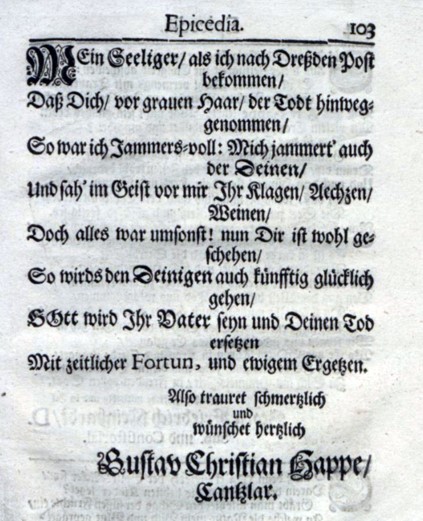 Epicedia. 103
MEin Seeliger/ als ich nach Dreßden Post
bekommen/
Daß Dich/ vor grauen Haar/ der Todt hinweg-
genommen/
So war ich Jammers-voll: Mich jammert' auch
der Deinen/
Und sah' im Geist vor mir Ihr Klagen/ Aechzen/
Weinen/
Doch alles war umsonst! nun Dir ist wohl ge-
schehen/
So wirds den Deinigen auch künfftig glücklich
gehen/
GOtt wird Ihr Vater seyn und Deinen Tod
ersetzen
Mit zeitlicher Fortun, und ewigem Ergetzen.
Also trauret schmertzlich
und
wünschet hertzlich
Gustav Christian Happe/
Cantzlar.